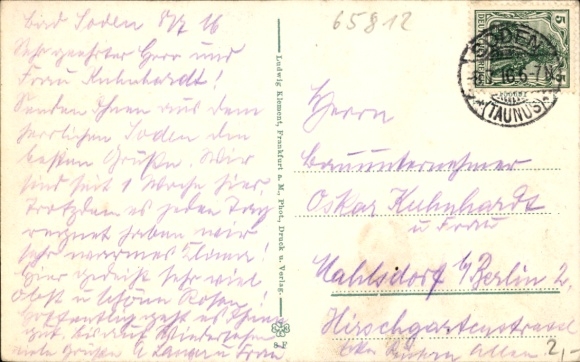 Bad Soden 8/7 16
Sehr geehrter Herr und
Frau Kuhnhardt!
Senden Ihnen aus dem
herrlichen Soden die
besten Grüße. Wir
sind seit 1 Woche hier,
Trotzdem es jeden Tag
regnet haben wir
sehr warmes Klima!
Hier gedeiht sehr viel
Obst u schöne Rosen!
Hoffentlich geht es Ihnen
gut. bis auf Wiedersehen
viele Grüße u Frau
Ludwig Klement, Frankfurt a. M., Phot., Druck u. Verlag.
65812
SODEN
16.6-7
(TAUNUS)
5
5
Herrn
Bauunternehmer
Oskar Kuhnhardt
u Frau
Mahlsdorf b/Berlin 2,
Hirschgartenstrasse
Ecke Allee
2,-